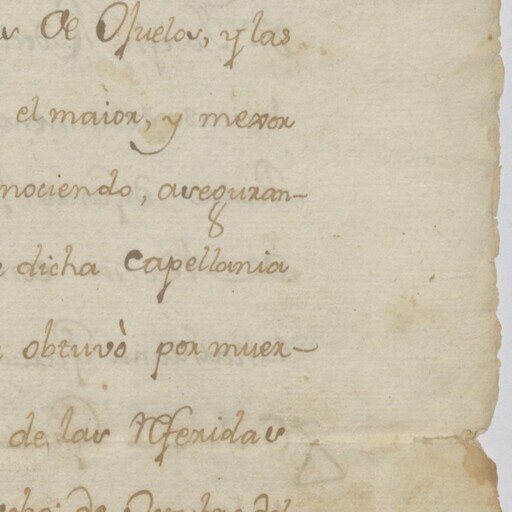 de Osuelos, y las
el maior, y menor
nociendo, aseguran-
dicha capellania
obtuvò por muer-
de las Referidas